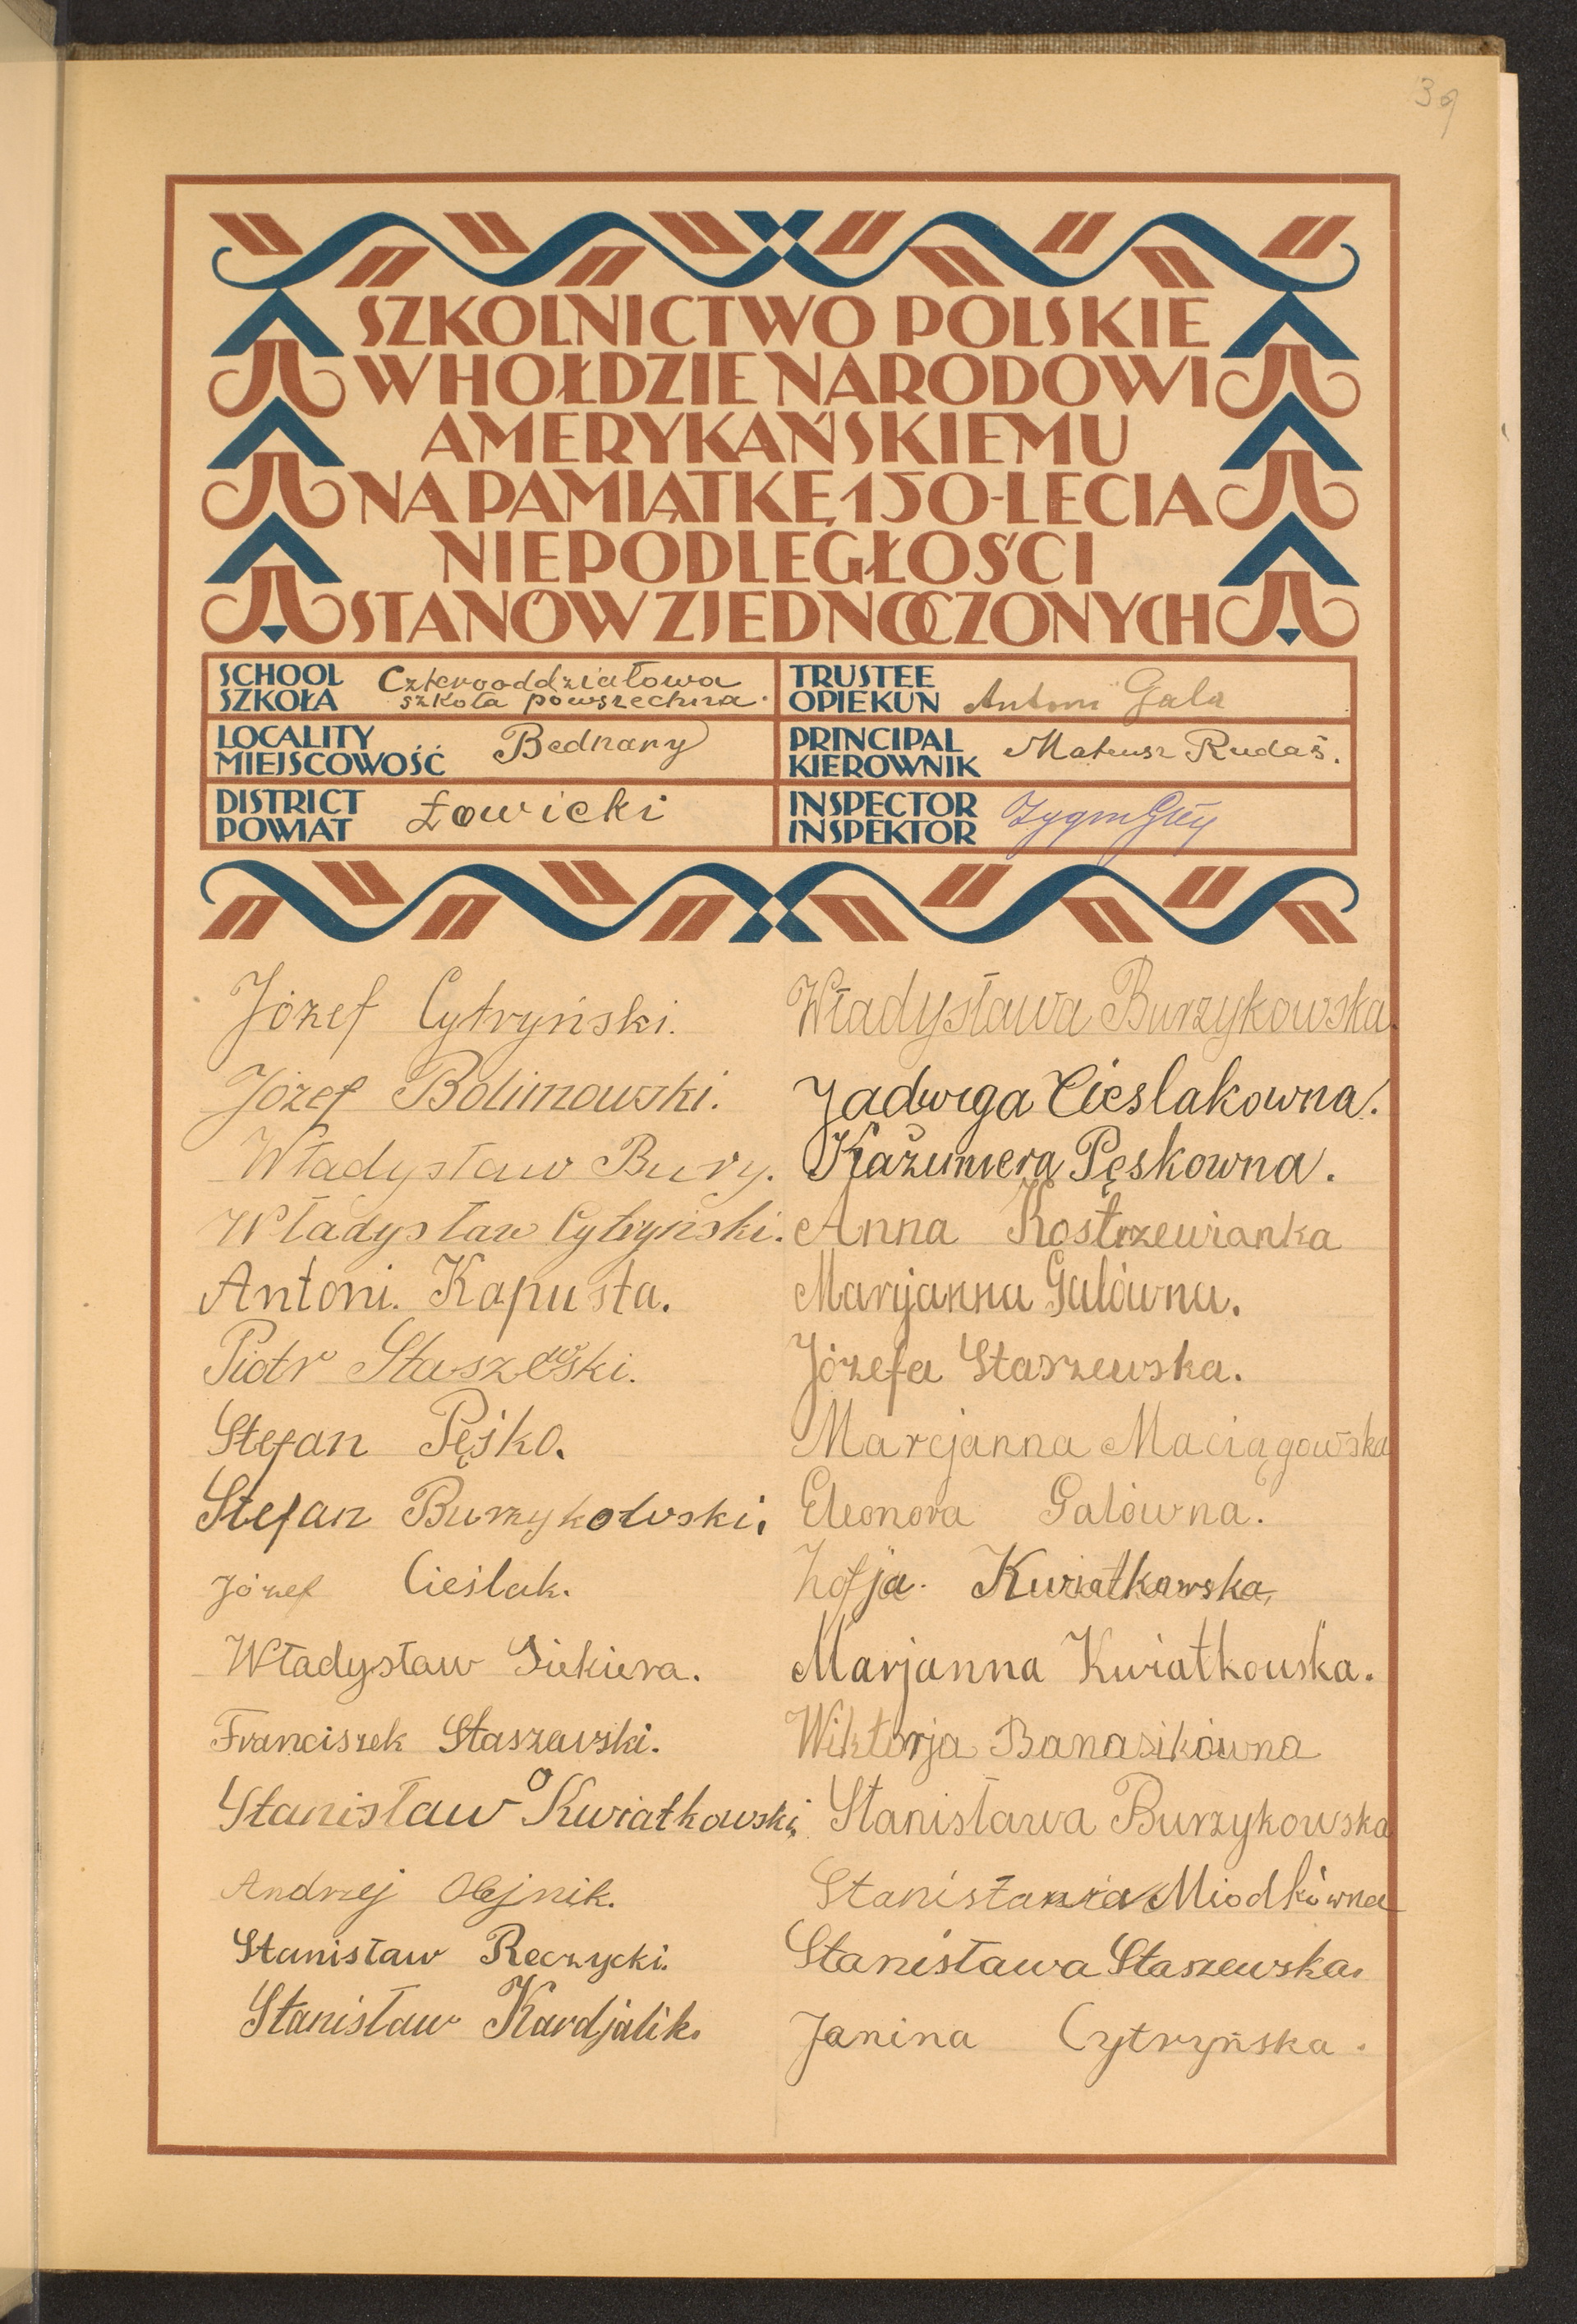 39
SZKOLNICTWO POLSKIE
W HOŁDZIE NARODOWI
AMERYKAŃSKIEMU
NA PAMIĄTKĘ 150-LECIA
NIEPODLEGŁOŚCI
STANÓW ZJEDNOCZONYCH
SCHOOL
SZKOŁA
Czterooddziałowa
szkoła powszechna.
TRUSTEE
OPIEKUN
Antoni Gala
LOCALITY
MIEJSCOWOŚĆ
Bednary
PRINCIPAL
KIEROWNIK
Mateusz Rudaś.
DISTRICT
POWIAT
Łowicki
INSPECTOR
INSPEKTOR
Józef Cytryński.
Józef Bolimowski.
Władysław Bury.
Władysław Cytryński.
Antoni. Kapusta.
Piotr Staszewski.
Stefan Pęśko.
Stefan Burzykowski.
Józef Cieślak.
Władysław Siekiera.
Franciszek Staszewski.
Stanisław Kwiatkowski,
Andrzej Olejnik.
Stanisław Reczycki.
Stanisław Kardjalik.
Władysława Burzykowska.
Jadwiga Cieslakowna.
Kaźimiera Pęskowna.
Anna Kostrzewianka
Maryjanna Galówna.
Józefa Staszewska.
Marcjanna Maciągowska
Eleonora Galówna.
Zofja. Kwiatkowska,
Marjanna Kwiatkowska.
Wiktorja Banasikówna
Stanisława Burzykowska
Stanisława Miodkówna
Stanisława Staszewska.
Janina Cytryńska.